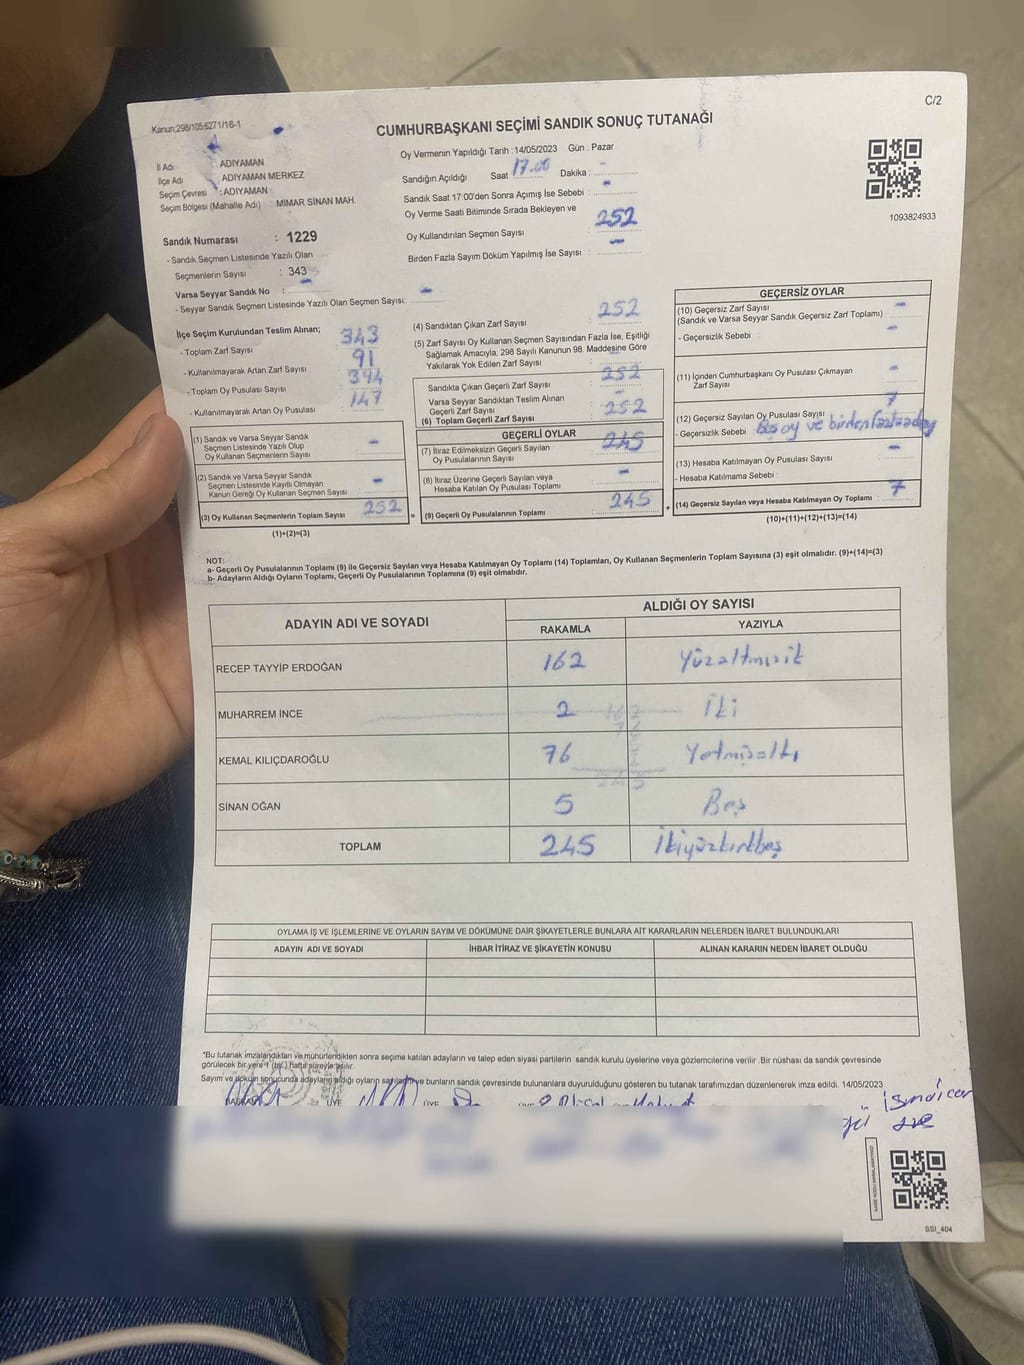 C/2
Kanun;298/105;6271/18-1
CUMHURBAŞKANI SEÇİMİ SANDIK SONUÇ TUTANAĞI
İl Adı : ADIYAMAN
İlçe Adı : ADIYAMAN MERKEZ
Seçim Çevresi : ADIYAMAN
Seçim Bölgesi (Mahalle Adı) : MİMAR SİNAN MAH.
Sandık Numarası : 1229
- Sandık Seçmen Listesinde Yazılı Olan
Seçmenlerin Sayısı : 343
Varsa Seyyar Sandık No : -
- Seyyar Sandık Seçmen Listesinde Yazılı Olan Seçmen Sayısı: -
Oy Vermenin Yapıldığı Tarih : 14/05/2023 Gün : Pazar
Sandığın Açıldığı Saat 17.00 Dakika : -
Sandık Saat 17:00'den Sonra Açımış İse Sebebi : -
Oy Verme Saati Bitiminde Sırada Bekleyen ve
Oy Kullandırılan Seçmen Sayısı : 252
Birden Fazla Sayım Döküm Yapılmış İse Sayısı : -
1093824933
İlçe Seçim Kurulundan Teslim Alınan;
- Toplam Zarf Sayısı : 343
- Kullanılmayarak Artan Zarf Sayısı : 91
- Toplam Oy Pusulası Sayısı : 394
- Kullanılmayarak Artan Oy Pusulası : 147
(1) Sandık ve Varsa Seyyar Sandık
Seçmen Listesinde Yazılı Olup
Oy Kullanan Seçmenlerin Sayısı : -
(2) Sandık ve Varsa Seyyar Sandık
Seçmen Listesinde Kayıtlı Olmayan
Kanun Gereği Oy Kullanan Seçmen Sayısı : -
(3) Oy Kullanan Seçmenlerin Toplam Sayısı : 252
(1)+(2)=(3)
(4) Sandıktan Çıkan Zarf Sayısı : 252
(5) Zarf Sayısı Oy Kullanan Seçmen Sayısından Fazla İse, Eşitliği
Sağlamak Amacıyla, 298 Sayılı Kanunun 98. Maddesine Göre
Yakılarak Yok Edilen Zarf Sayısı :
Sandıkta Çıkan Geçerli Zarf Sayısı : 252
Varsa Seyyar Sandıktan Teslim Alınan
Geçerli Zarf Sayısı
(6) Toplam Geçerli Zarf Sayısı : 252
GEÇERLİ OYLAR
(7) İtiraz Edilmeksizin Geçerli Sayılan
Oy Pusulalarının Sayısı : 245
(8) İtiraz Üzerine Geçerli Sayılan veya
Hesaba Katılan Oy Pusulası Toplamı : -
(9) Geçerli Oy Pusulalarının Toplamı : 245
GEÇERSİZ OYLAR
(10) Geçersiz Zarf Sayısı
(Sandık ve Varsa Seyyar Sandık Geçersiz Zarf Toplamı) : -
- Geçersizlik Sebebi : -
(11) İçinden Cumhurbaşkanı Oy Pusulası Çıkmayan
Zarf Sayısı : -
(12) Geçersiz Sayılan Oy Pusulası Sayısı : 7
- Geçersizlik Sebebi : Boş oy ve birden fazla aday
(13) Hesaba Katılmayan Oy Pusulası Sayısı : -
- Hesaba Katılmama Sebebi :
(14) Geçersiz Sayılan veya Hesaba Katılmayan Oy Toplamı : 7
(10)+(11)+(12)+(13)=(14)
NOT:
a- Geçerli Oy Pusulalarının Toplamı (9) ile Geçersiz Sayılan veya Hesaba Katılmayan Oy Toplamı (14) Toplamları, Oy Kullanan Seçmenlerin Toplam Sayısına (3) eşit olmalıdır. (9)+(14)=(3)
b- Adayların Aldığı Oyların Toplamı, Geçerli Oy Pusulalarının Toplamına (9) eşit olmalıdır.
ADAYIN ADI VE SOYADI ALDIĞI OY SAYISI
RAKAMLA YAZIYLA
RECEP TAYYİP ERDOĞAN 162 Yüzaltmışiki
MUHARREM İNCE 2 İki
KEMAL KILIÇDAROĞLU 76 Yetmişaltı
SİNAN OĞAN 5 Beş
TOPLAM 245 İkiyüzkırkbeş
OYLAMA İŞ VE İŞLEMLERİNE VE OYLARIN SAYIM VE DÖKÜMÜNE DAİR ŞİKAYETLERLE BUNLARA AİT KARARLARIN NELERDEN İBARET BULUNDUKLARI
ADAYIN ADI VE SOYADI İHBAR İTİRAZ VE ŞİKAYETİN KONUSU ALINAN KARARIN NEDEN İBARET OLDUĞU
*Bu tutanak imzalandıktan ve mühürlendikten sonra seçime katılan adayların ve talep eden siyasi partilerin sandık kurulu üyelerine veya gözlemcilerine verilir .Bir nüshası da sandık çevresinde
görülecek bir yere 1 (bir) hafta süreyle asılır.
Sayım ve döküm sonucunda adayların aldığı oyların sayılarını ve bunların sandık çevresinde bulunanlara duyurulduğunu gösteren bu tutanak tarafımızdan düzenlenerek imza edildi. 14/05/2023
BAŞKAN ÜYE ÜYE
SSI_404